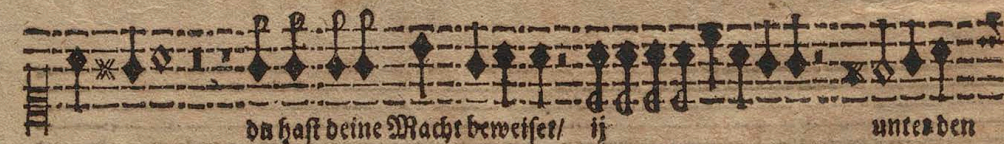 du haſt deine Macht beweiſet/ ij unter den